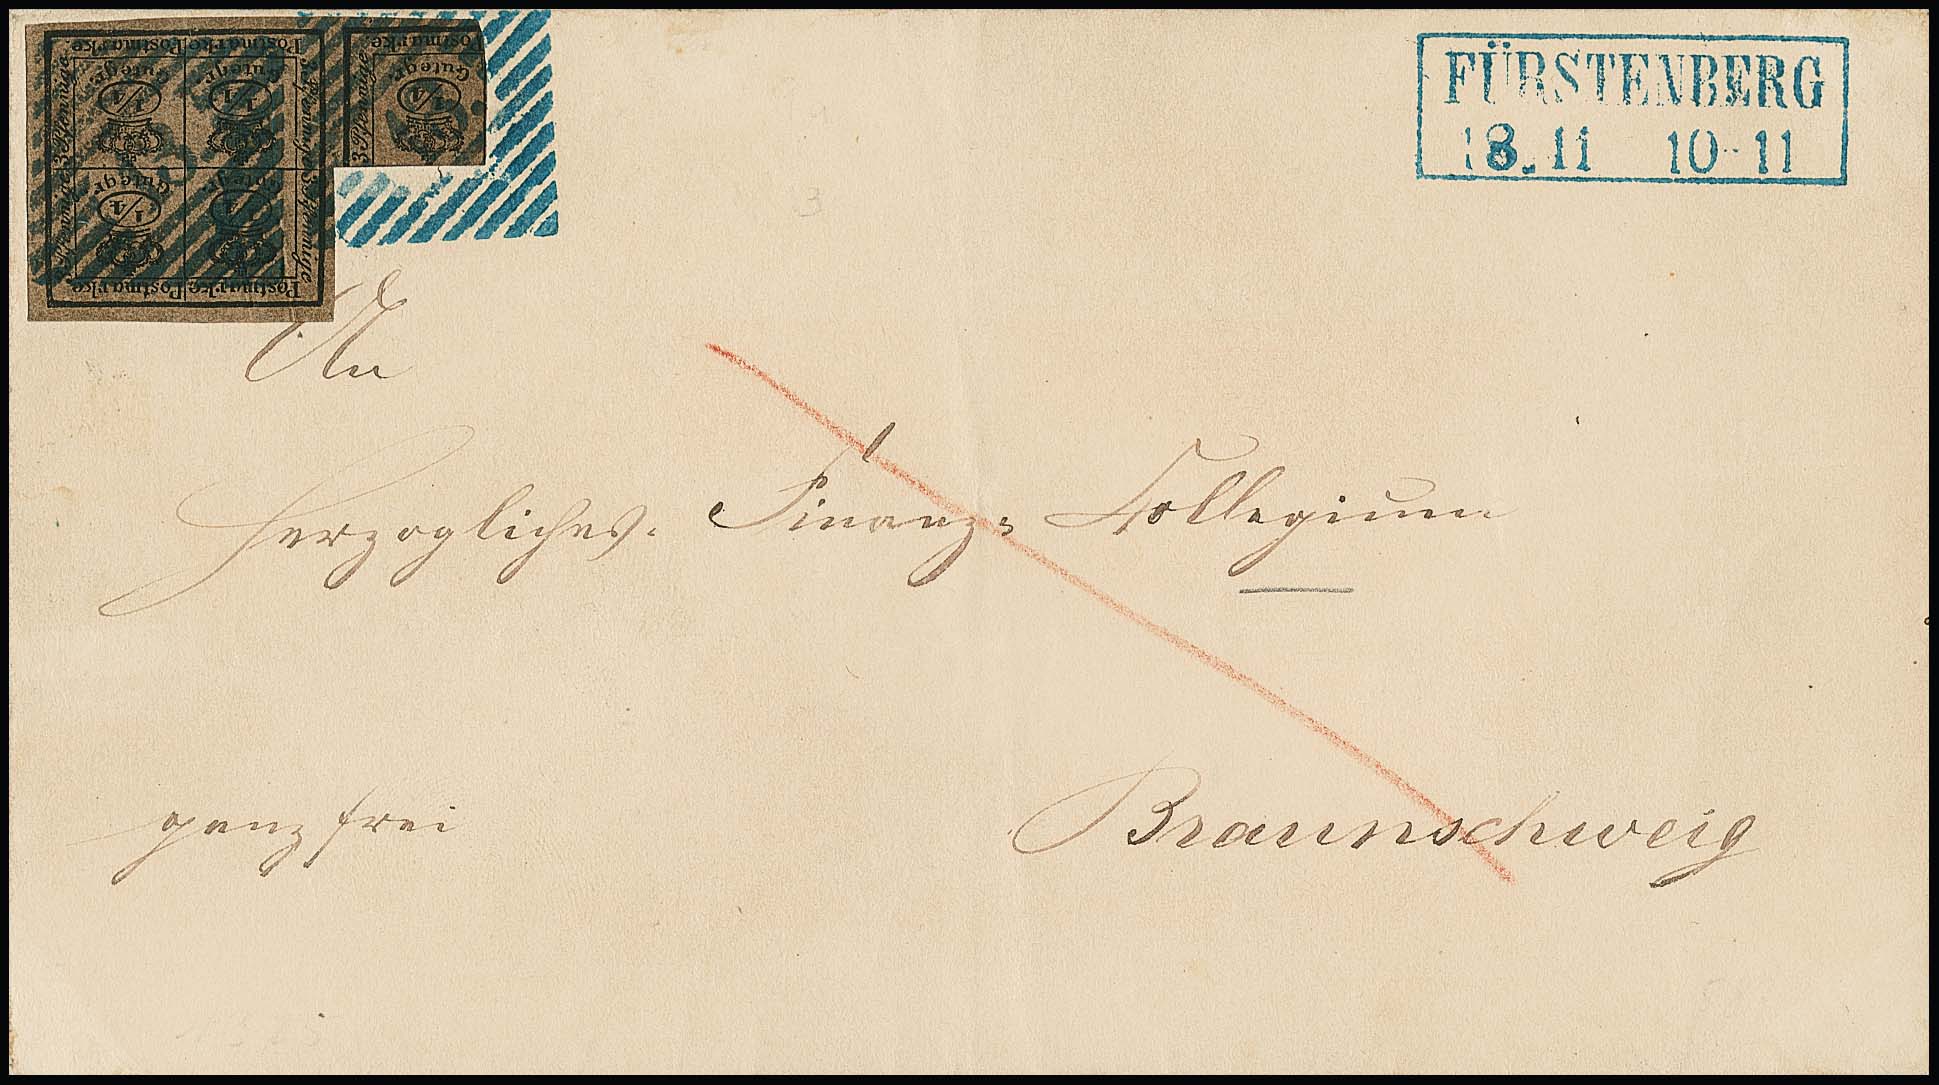 Postmarke Postmarke Postmarke
3 Pfennige
Gutegr.
1/4
Gutegr.
1/4
3 Pfennige
Postmarke
3 Pfennige
Gutegr.
1/4
3 Pfennige
Gutegr.
1/4
Gutegr.
1/4
3 Pfennige
Postmarke Postmarke Postmarke
FÜRSTENBERG
18. 11 10-11
An
Herzogliches Finanz-Collegium
ganz frei
Braunschweig